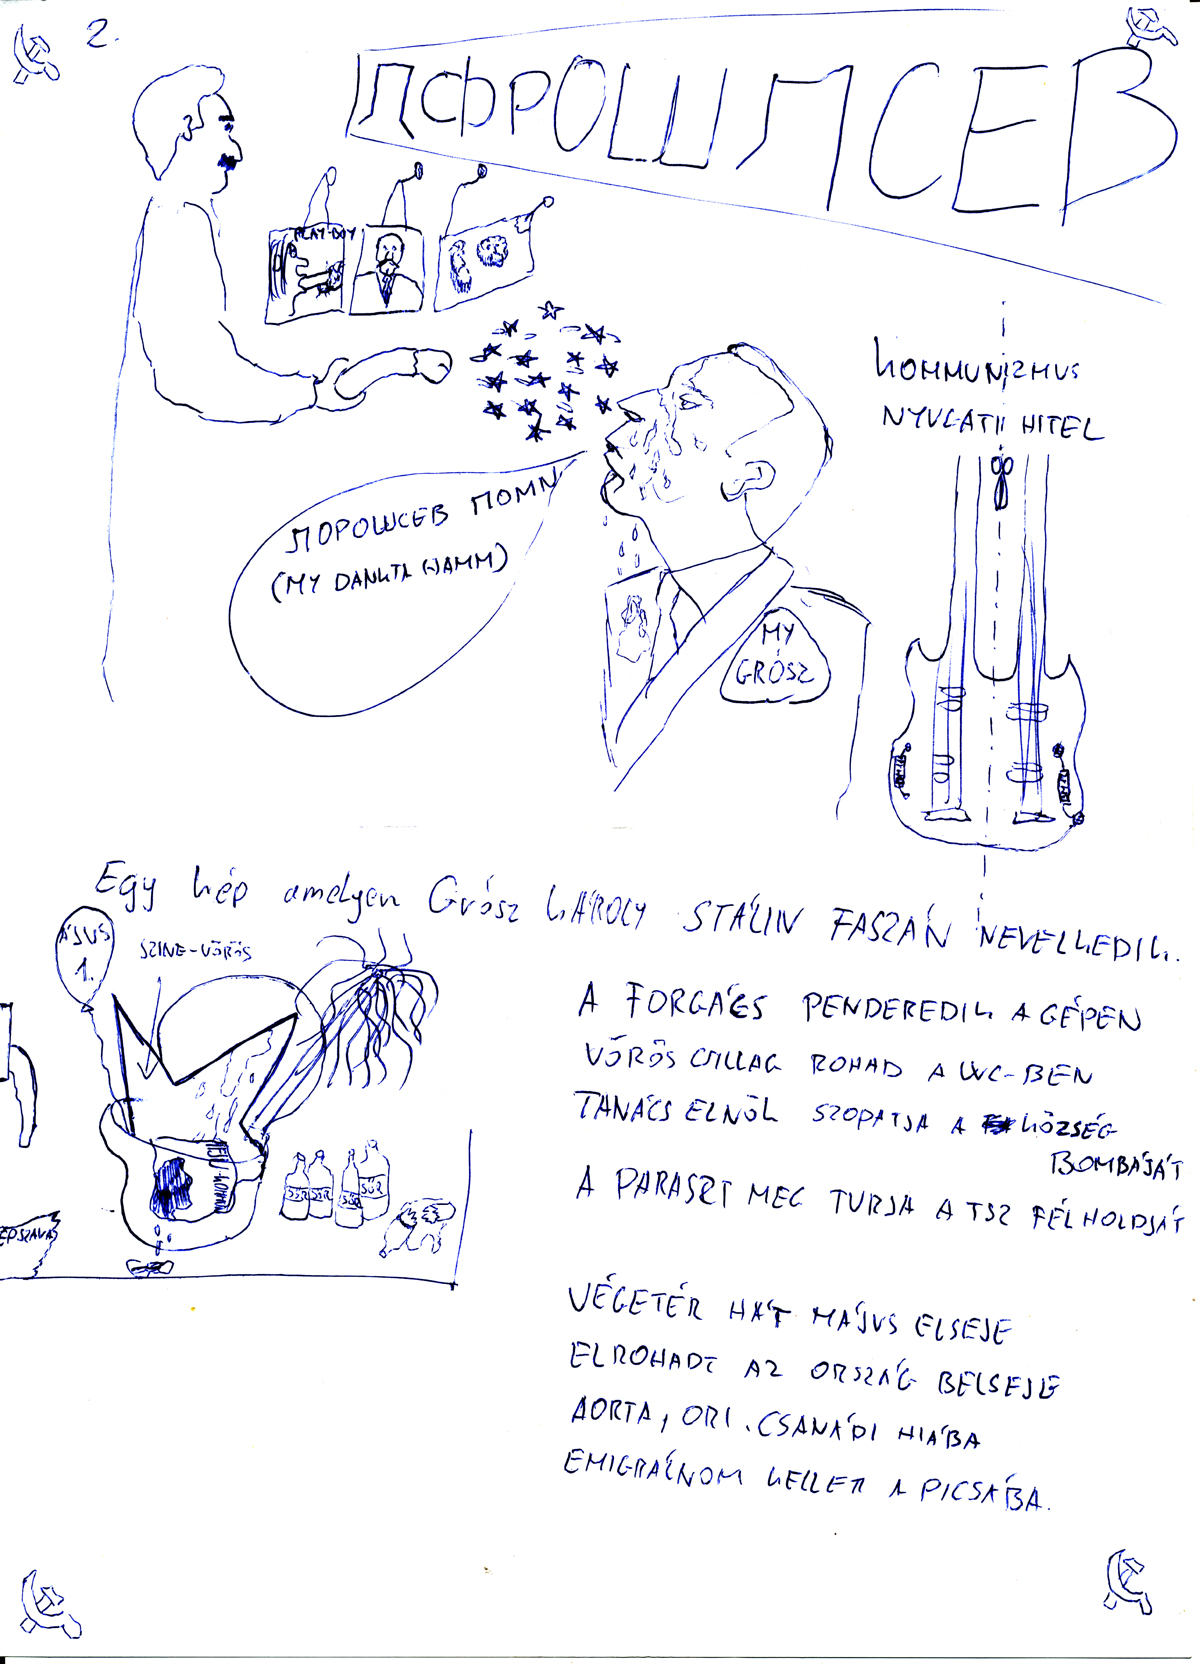 2.
ПСФРОШПСЕВ
PLAY-BOY
KOMMUNIZMUS
NYUGATI HITEL
ПОРОШСЕВ ПОМN
(MY DANKTA
MY
GRÓSZ
Egy kép amelyen GRÓSZ KÁROLY SZTÁLIN FASZÁN NEVELKEDIK.
ÁJUS
1.
SZINE-VÖRÖS
A FORGÁCS PENDEREDIK A GÉPEN
VÖRÖS CSILLAG ROHAD A WC-BEN
TANÁCS ELNÖK SZOPATJA A KÖZSÉG
BOMBÁJÁT
A PARASZT MEG TURJA A TSZ FÉLHOLDJÁT
SÖR SÖR SÖR SÖR
ÉPSZAVA
VÉGETÉR HÁT MÁJUS ELSEJE
ELROHADT AZ ORSZÁG BELSEJE
AORTA, ORI. CSANÁDI HIÁBA
EMIGRÁLNOM KELLETT A PICSÁBA.